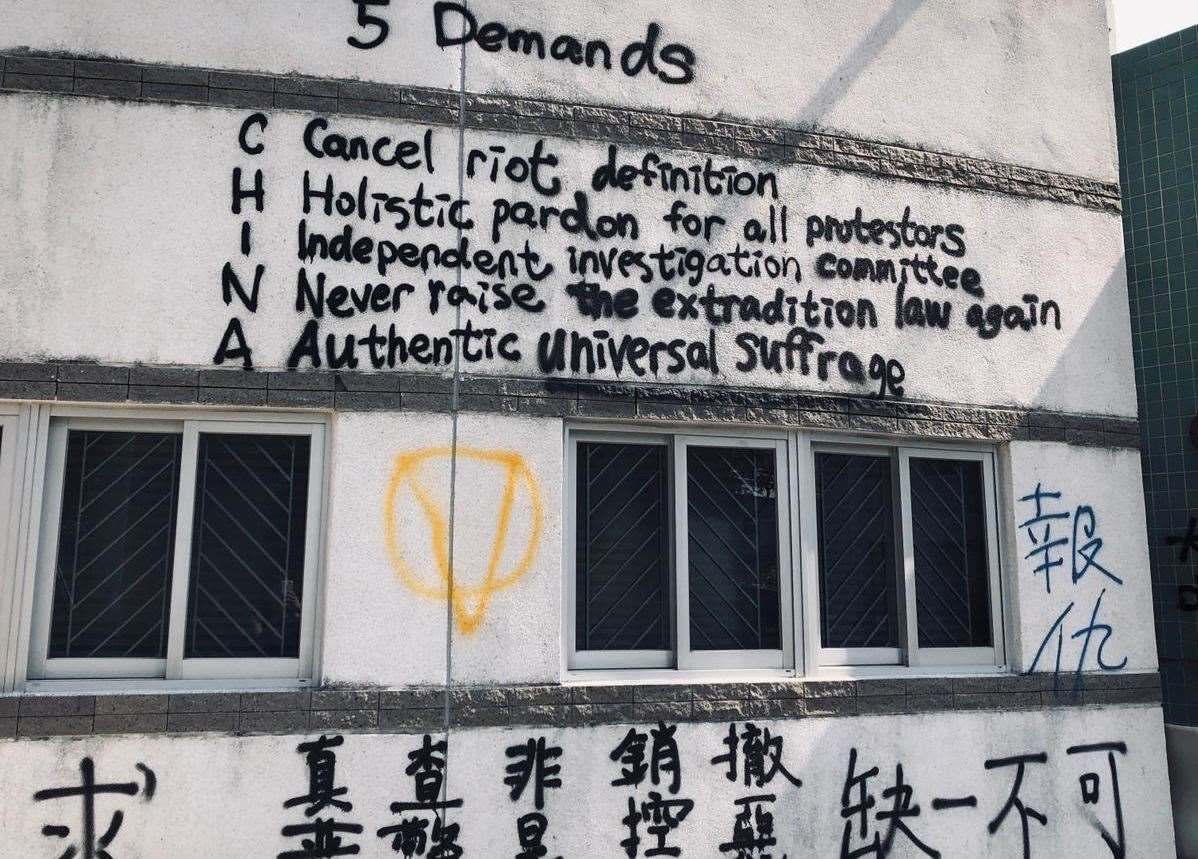 5 Demands
C Cancel riot definition
H Holistic pardon for all protestors
I Independent investigation committee
N Never raise the extradition law again
A Authentic universal suffrage
報仇
撤
銷控
非
查
真
求
缺一不可